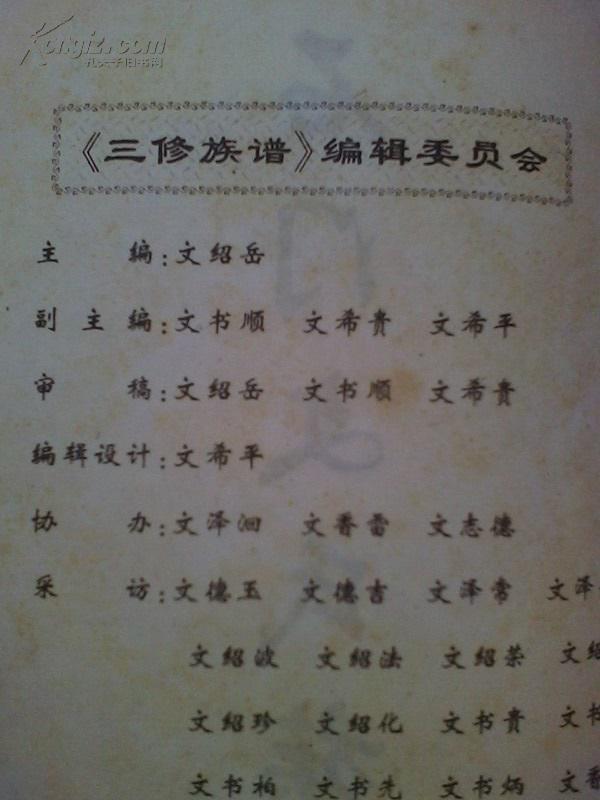 Kongfz.com
孔夫子旧书网
《三修族谱》编辑委员会
主 编:文绍岳
副主编:文书顺 文希贵 文希平
审 稿:文绍岳 文书顺 文希贵
编辑设计:文希平
协 办:文泽洄 文香雷 文志德
采 访:文德玉 文德吉 文泽常 文泽
文绍波 文绍法 文绍荣 文绍
文绍珍 文绍化 文书贵 文书
文书柏 文书先 文书炳 文香